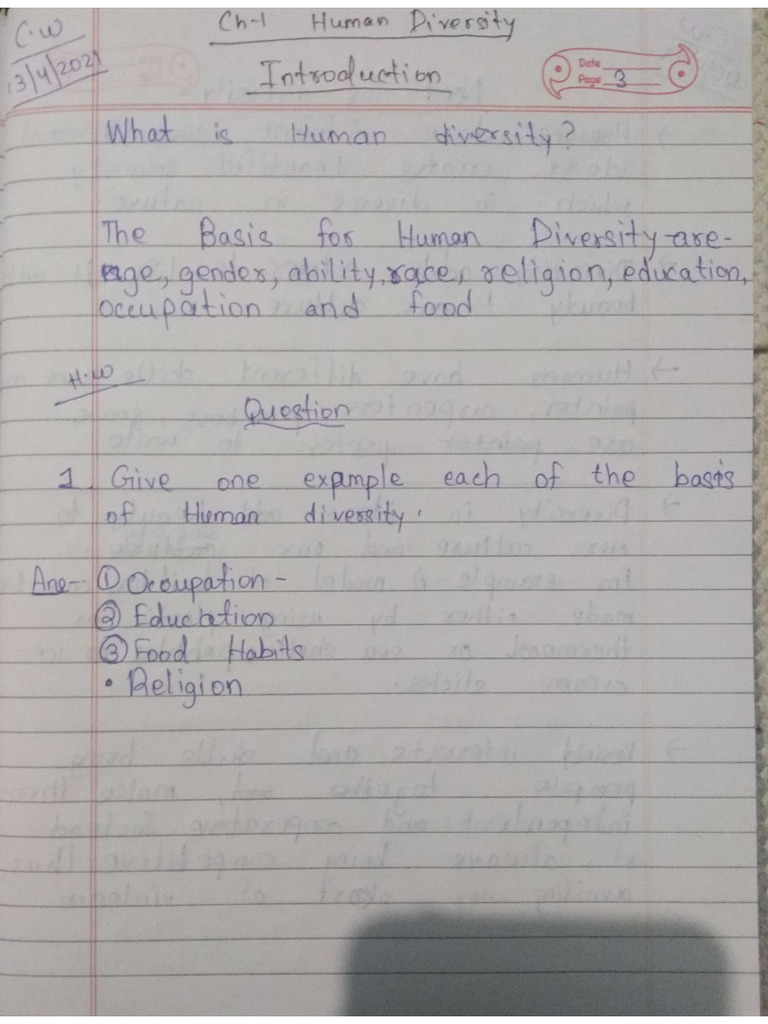 C.W
13/4/2021
Ch-1 Human Diversity
Introduction
Date
Page 3
What is Human diversity?
The Basis for Human Diversity are-
age, gender, ability, race, religion, education,
occupation and food
H.W
Question
1. Give one example each of the basis
of Human diversity.
Ans- ① Occupation -
② Education
③ Food Habits
• Religion